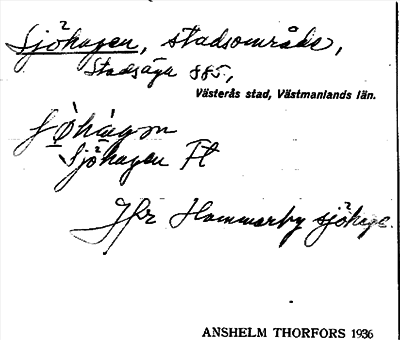 Sjöhagen, stadsområde,
Stadsäga 885,
Västerås stad, Västmanlands län.
Sjöhagen Ft
Jfr Hammarby sjöhage.
ANSHELM THORFORS 1936